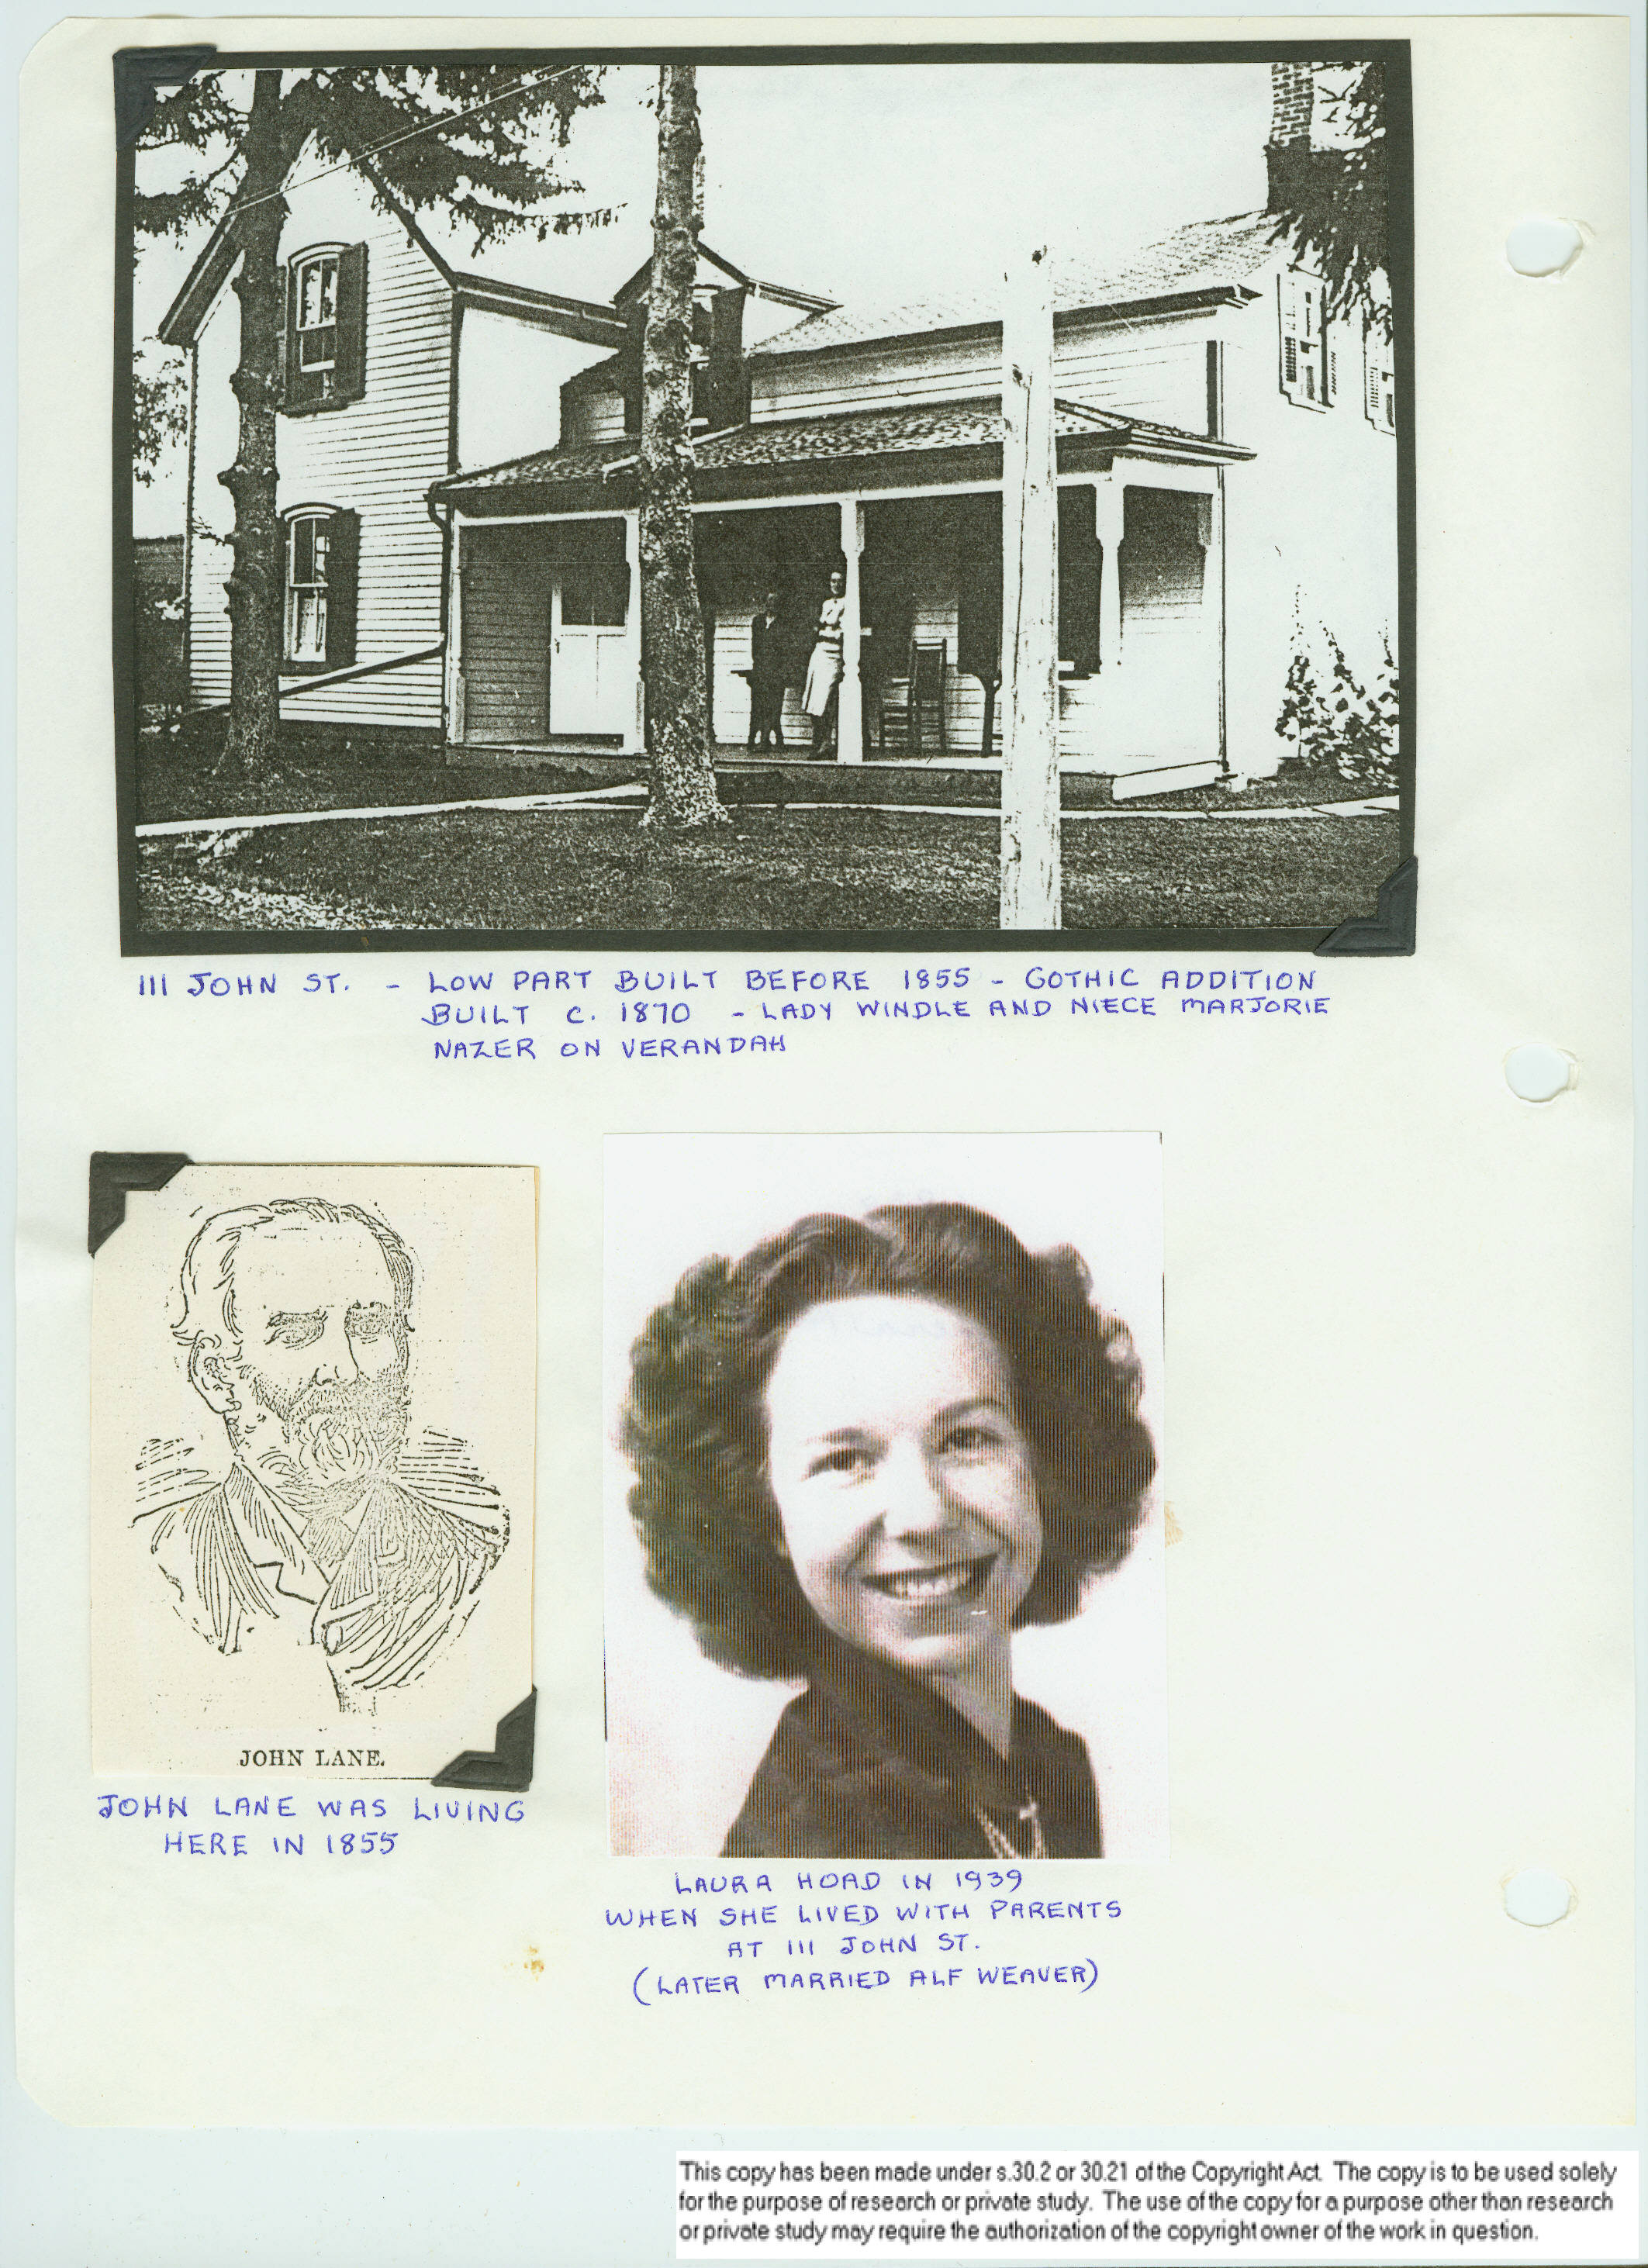 111 JOHN ST. - LOW PART BUILT BEFORE 1855 - GOTHIC ADDITION
BUILT C. 1870 - LADY WINDLE AND NIECE MARJORIE
NAZER ON VERANDAH
JOHN LANE.
JOHN LANE WAS LIVING
HERE IN 1855
LAURA HOAD IN 1939
WHEN SHE LIVED WITH PARENTS
AT 111 JOHN ST.
(LATER MARRIED ALF WEAVER)
This copy has been made under s.30.2 or 30.21 of the Copyright Act. The copy is to be used solely
for the purpose of research or private study. The use of the copy for a purpose other than research
or private study may require the authorization of the copyright owner of the work in question.